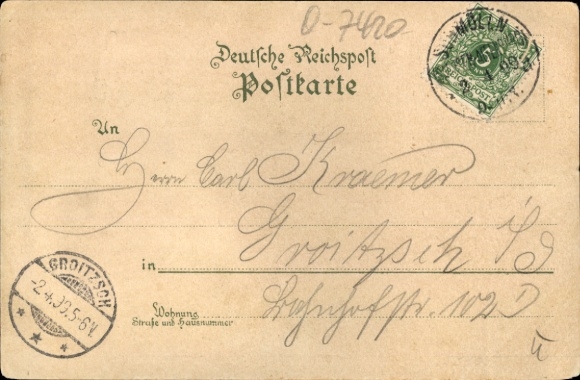 D-7420
SCHMÖLLN
REICHSPOST
5
Deutsche Reichspost
Postkarte
An
Herrn Carl Kraemer
Groitzsch i/S
in
GROITZSCH
-2.4.99.5-6N.
Wohnung
Straße und Hausnummer
Bahnhofstr. 102D